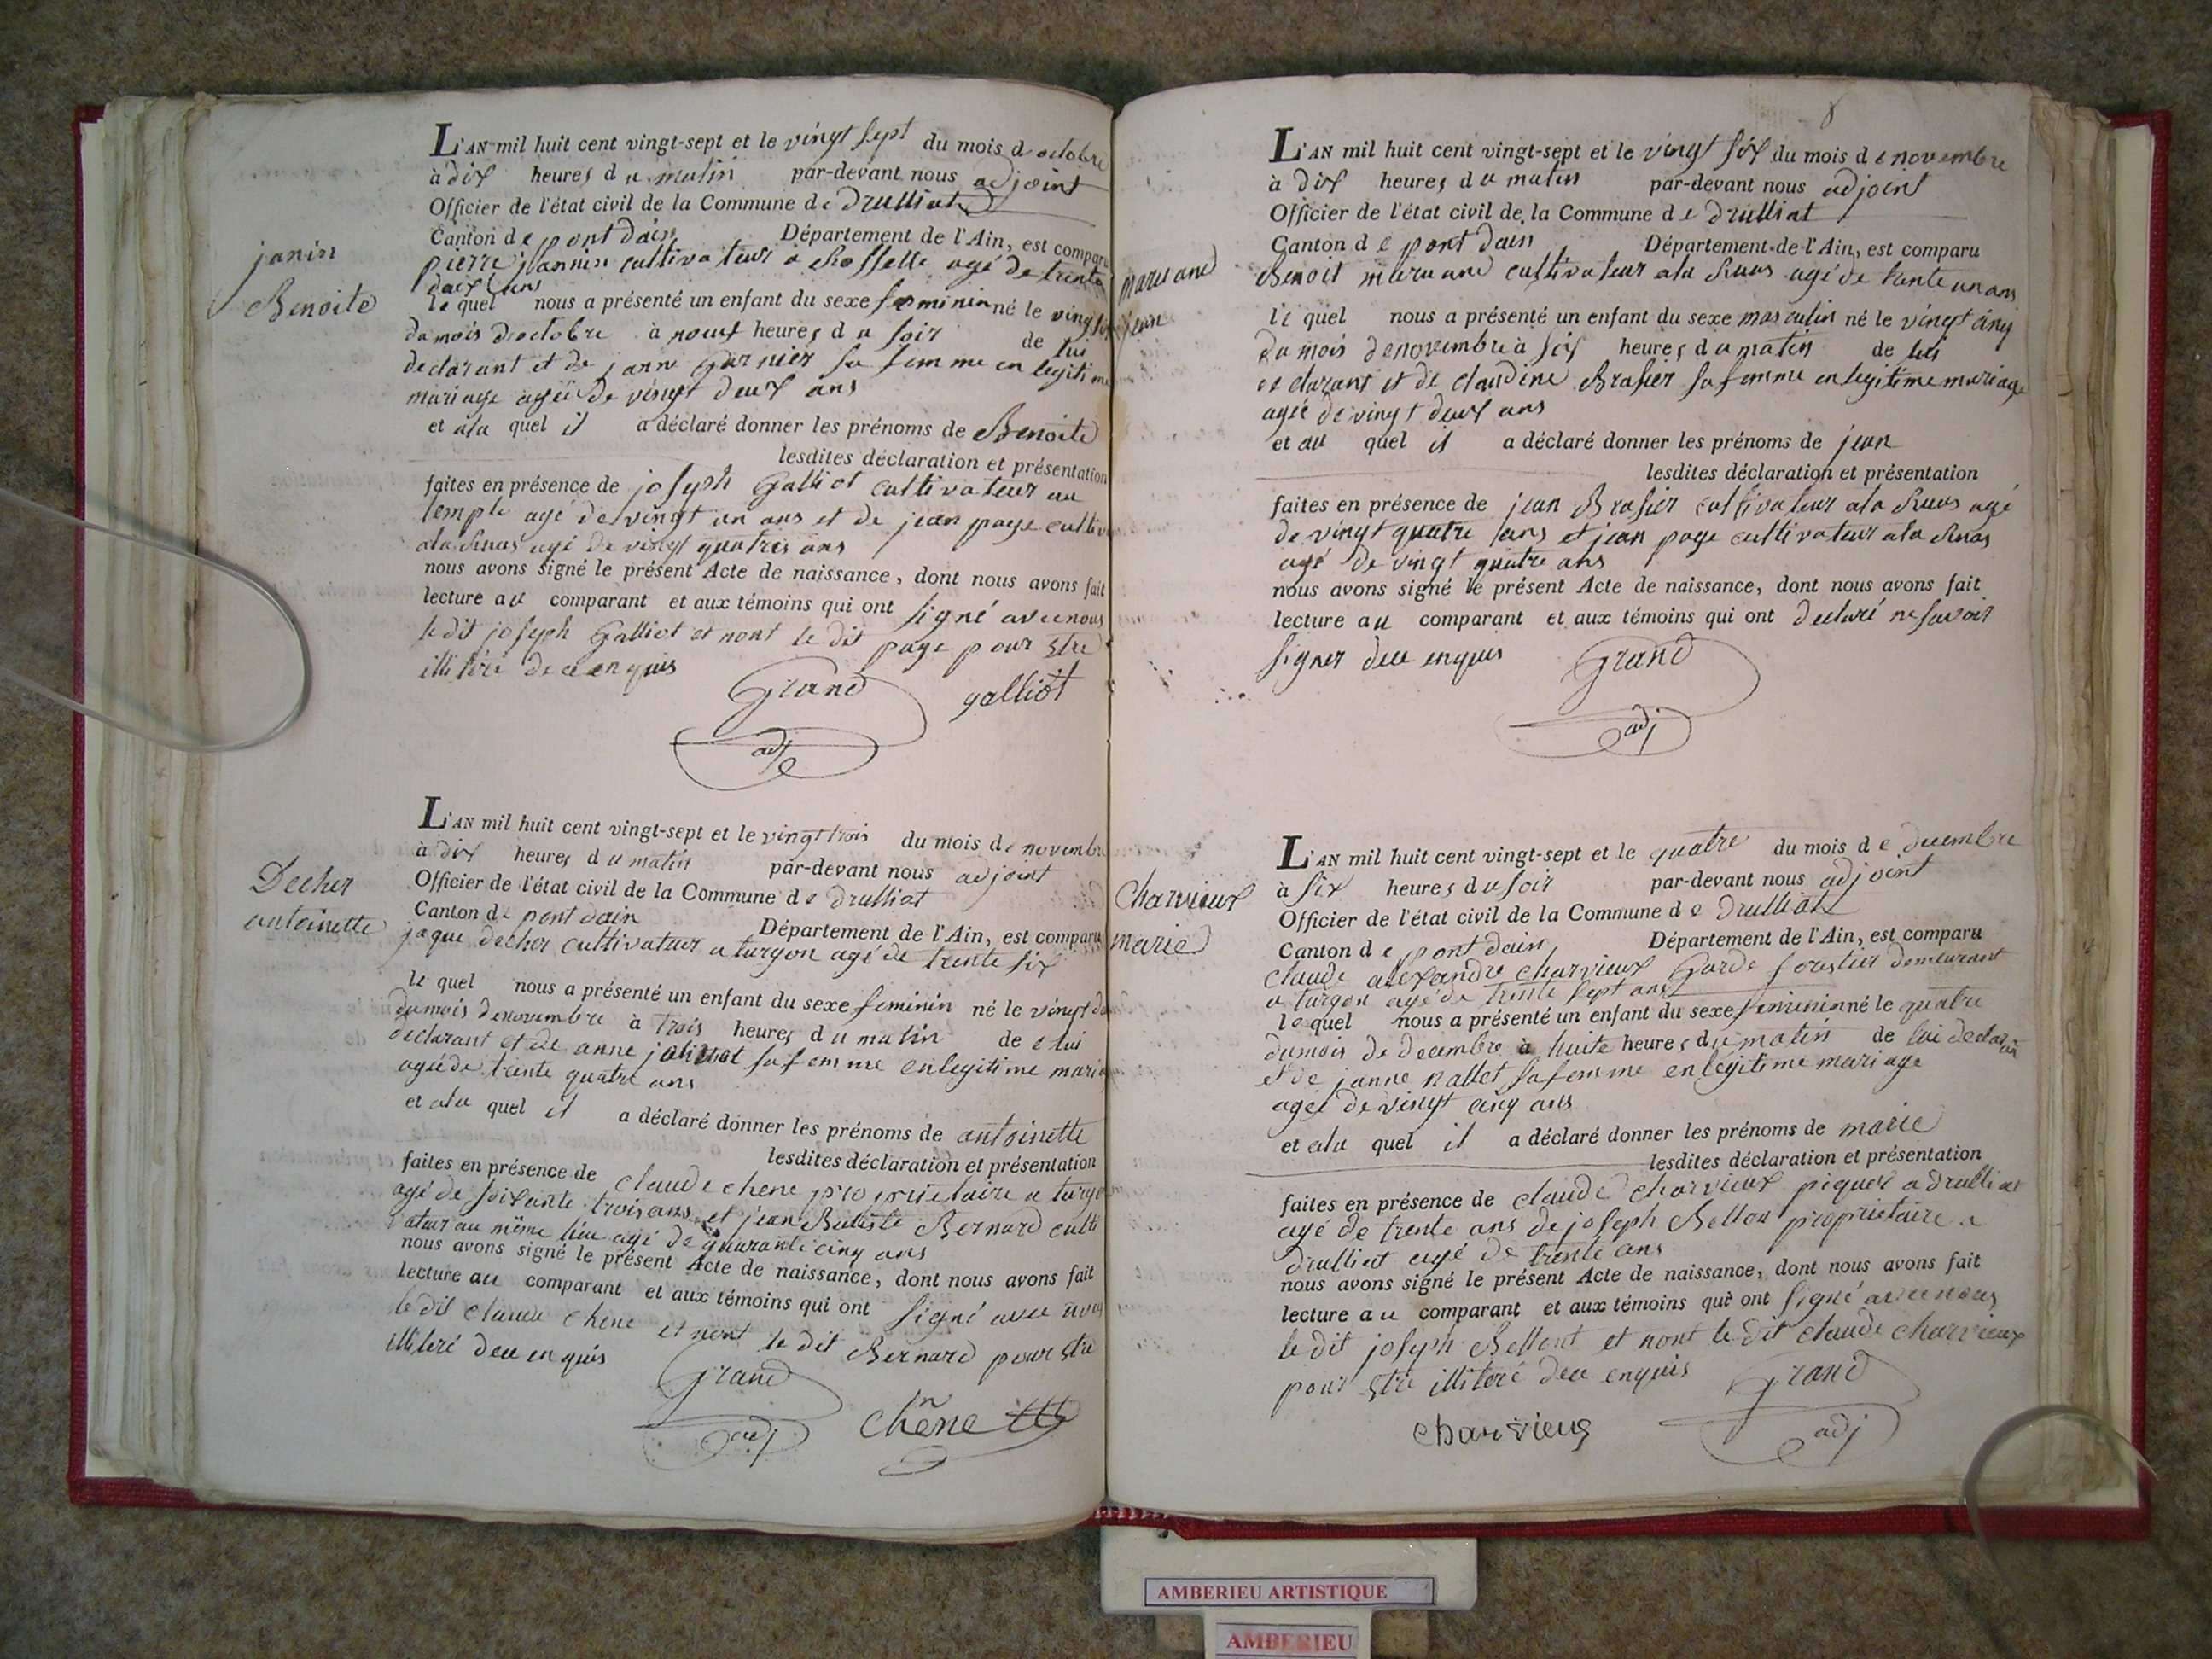 janin
Benoite
L'AN mil huit cent vingt-sept et le vingt sept du mois d octobre
à dix heures d u matin par-devant nous adjoint
Officier de l'état civil de la Commune d e Drulliat
Canton d e pont dain Département de l'Ain, est comparu
pierre jannin cultivateur a agé de trente
deux ans
le quel nous a présenté un enfant du sexe feminin né le
du mois doctobre à neuf heures d u soir de lui
declarant et de janne Garnier sa femme en legitime
mariage agée de vingt deux ans
et ala quel il a déclaré donner les prénoms de Benoite
lesdites déclaration et présentation
faites en présence de joseph Galliot cultivateur au
temple agé de vingt un ans et de jean page
agé de vingt quatres ans
nous avons signé le présent Acte de naissance, dont nous avons fait
lecture au comparant et aux témoins qui ont signé avec nous
le dit joseph Galliot et nont le dit page pour stre
illitéré de ce enquis
Grand galliot
adj
Decher
antoinette
L'AN mil huit cent vingt-sept et le vingt trois du mois de novembre
à dix heures d u matin par-devant nous adjoint
Officier de l'état civil de la Commune d e Drulliat
Canton d e pont dain Département de l'Ain, est comparu
jaque decher cultivateur a turgon agé de trente six
le quel nous a présenté un enfant du sexe feminin né le vingt
du mois denovembre à trois heures d u matin de lui
declarant et de anne sa femme en legitime
agée de trente quatre ans
et ala quel il a déclaré donner les prénoms de antoinette
lesdites déclaration et présentation
faites en présence de claude chene proprietaire a
agé de soixante trois ans et jean Batiste Bernard culti
vateur au même lieu agé de quarante cinq ans
nous avons signé le présent Acte de naissance, dont nous avons fait
lecture au comparant et aux témoins qui ont signé avec nous
le dit claude chene et nont le dit Bernard pour stre
illiteré de ce enquis
Grand
adj
Chêne
8
jean
L'AN mil huit cent vingt-sept et le vingt six du mois d e novembre
à dix heures d u matin par-devant nous adjoint
Officier de l'état civil de la Commune d e Drulliat
Canton d e pont dain Département de l'Ain, est comparu
Benoit cultivateur ala agé de trante un ans
le quel nous a présenté un enfant du sexe masculin né le vingt cinq
du mois denovembre à six heures d u matin de lui
declarant et de claudine Brasier sa femme en legitime mariage
agée de vingt deux ans
et au quel il a déclaré donner les prénoms de jean
lesdites déclaration et présentation
faites en présence de jean Brasier cultivateur ala agé
de vingt quatre ans et jean page cultivateur ala
agé de vingt quatre ans
nous avons signé le présent Acte de naissance, dont nous avons fait
lecture au comparant et aux témoins qui ont declaré ne savoir
signer de ce enquis Grand
adj
Charvieux
marie
L'AN mil huit cent vingt-sept et le quatre du mois d e decembre
à six heures d u soir par-devant nous adjoint
Officier de l'état civil de la Commune d e Drulliat
Canton d e pont dain Département de l'Ain, est comparu
claude alexandre charvieux Garde forestier demeurant
a turgon agé de trente sept ans
le quel nous a présenté un enfant du sexe feminin né le quatre
dumois de decembre à huite heures du matin de lui declarant
et de janne nallet sa femme en legitime mariage
agée de vingt cinq ans
et ala quel il a déclaré donner les prénoms de marie
lesdites déclaration et présentation
faites en présence de claude charvieux a drulliat
agé de trente ans de joseph Bellon proprietaire a
drulliat agé de trente ans
nous avons signé le présent Acte de naissance, dont nous avons fait
lecture au comparant et aux témoins qui ont signé avec nous
le dit joseph Bellont et nont le dit claude charvieux
pour stre illiteré de ce enquis Grand
adj
charvieux
AMBERIEU ARTISTIQUE
AMBERIEU